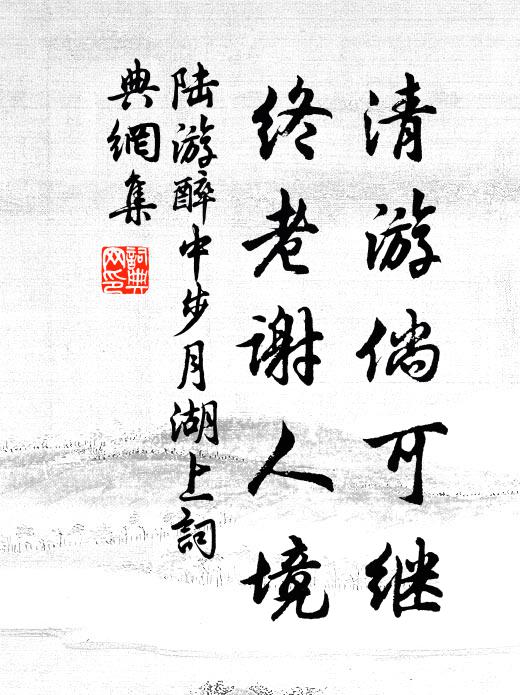 清游倘可继
终老谢人境
陆游醉中步月湖上词
典網集
詞典網印